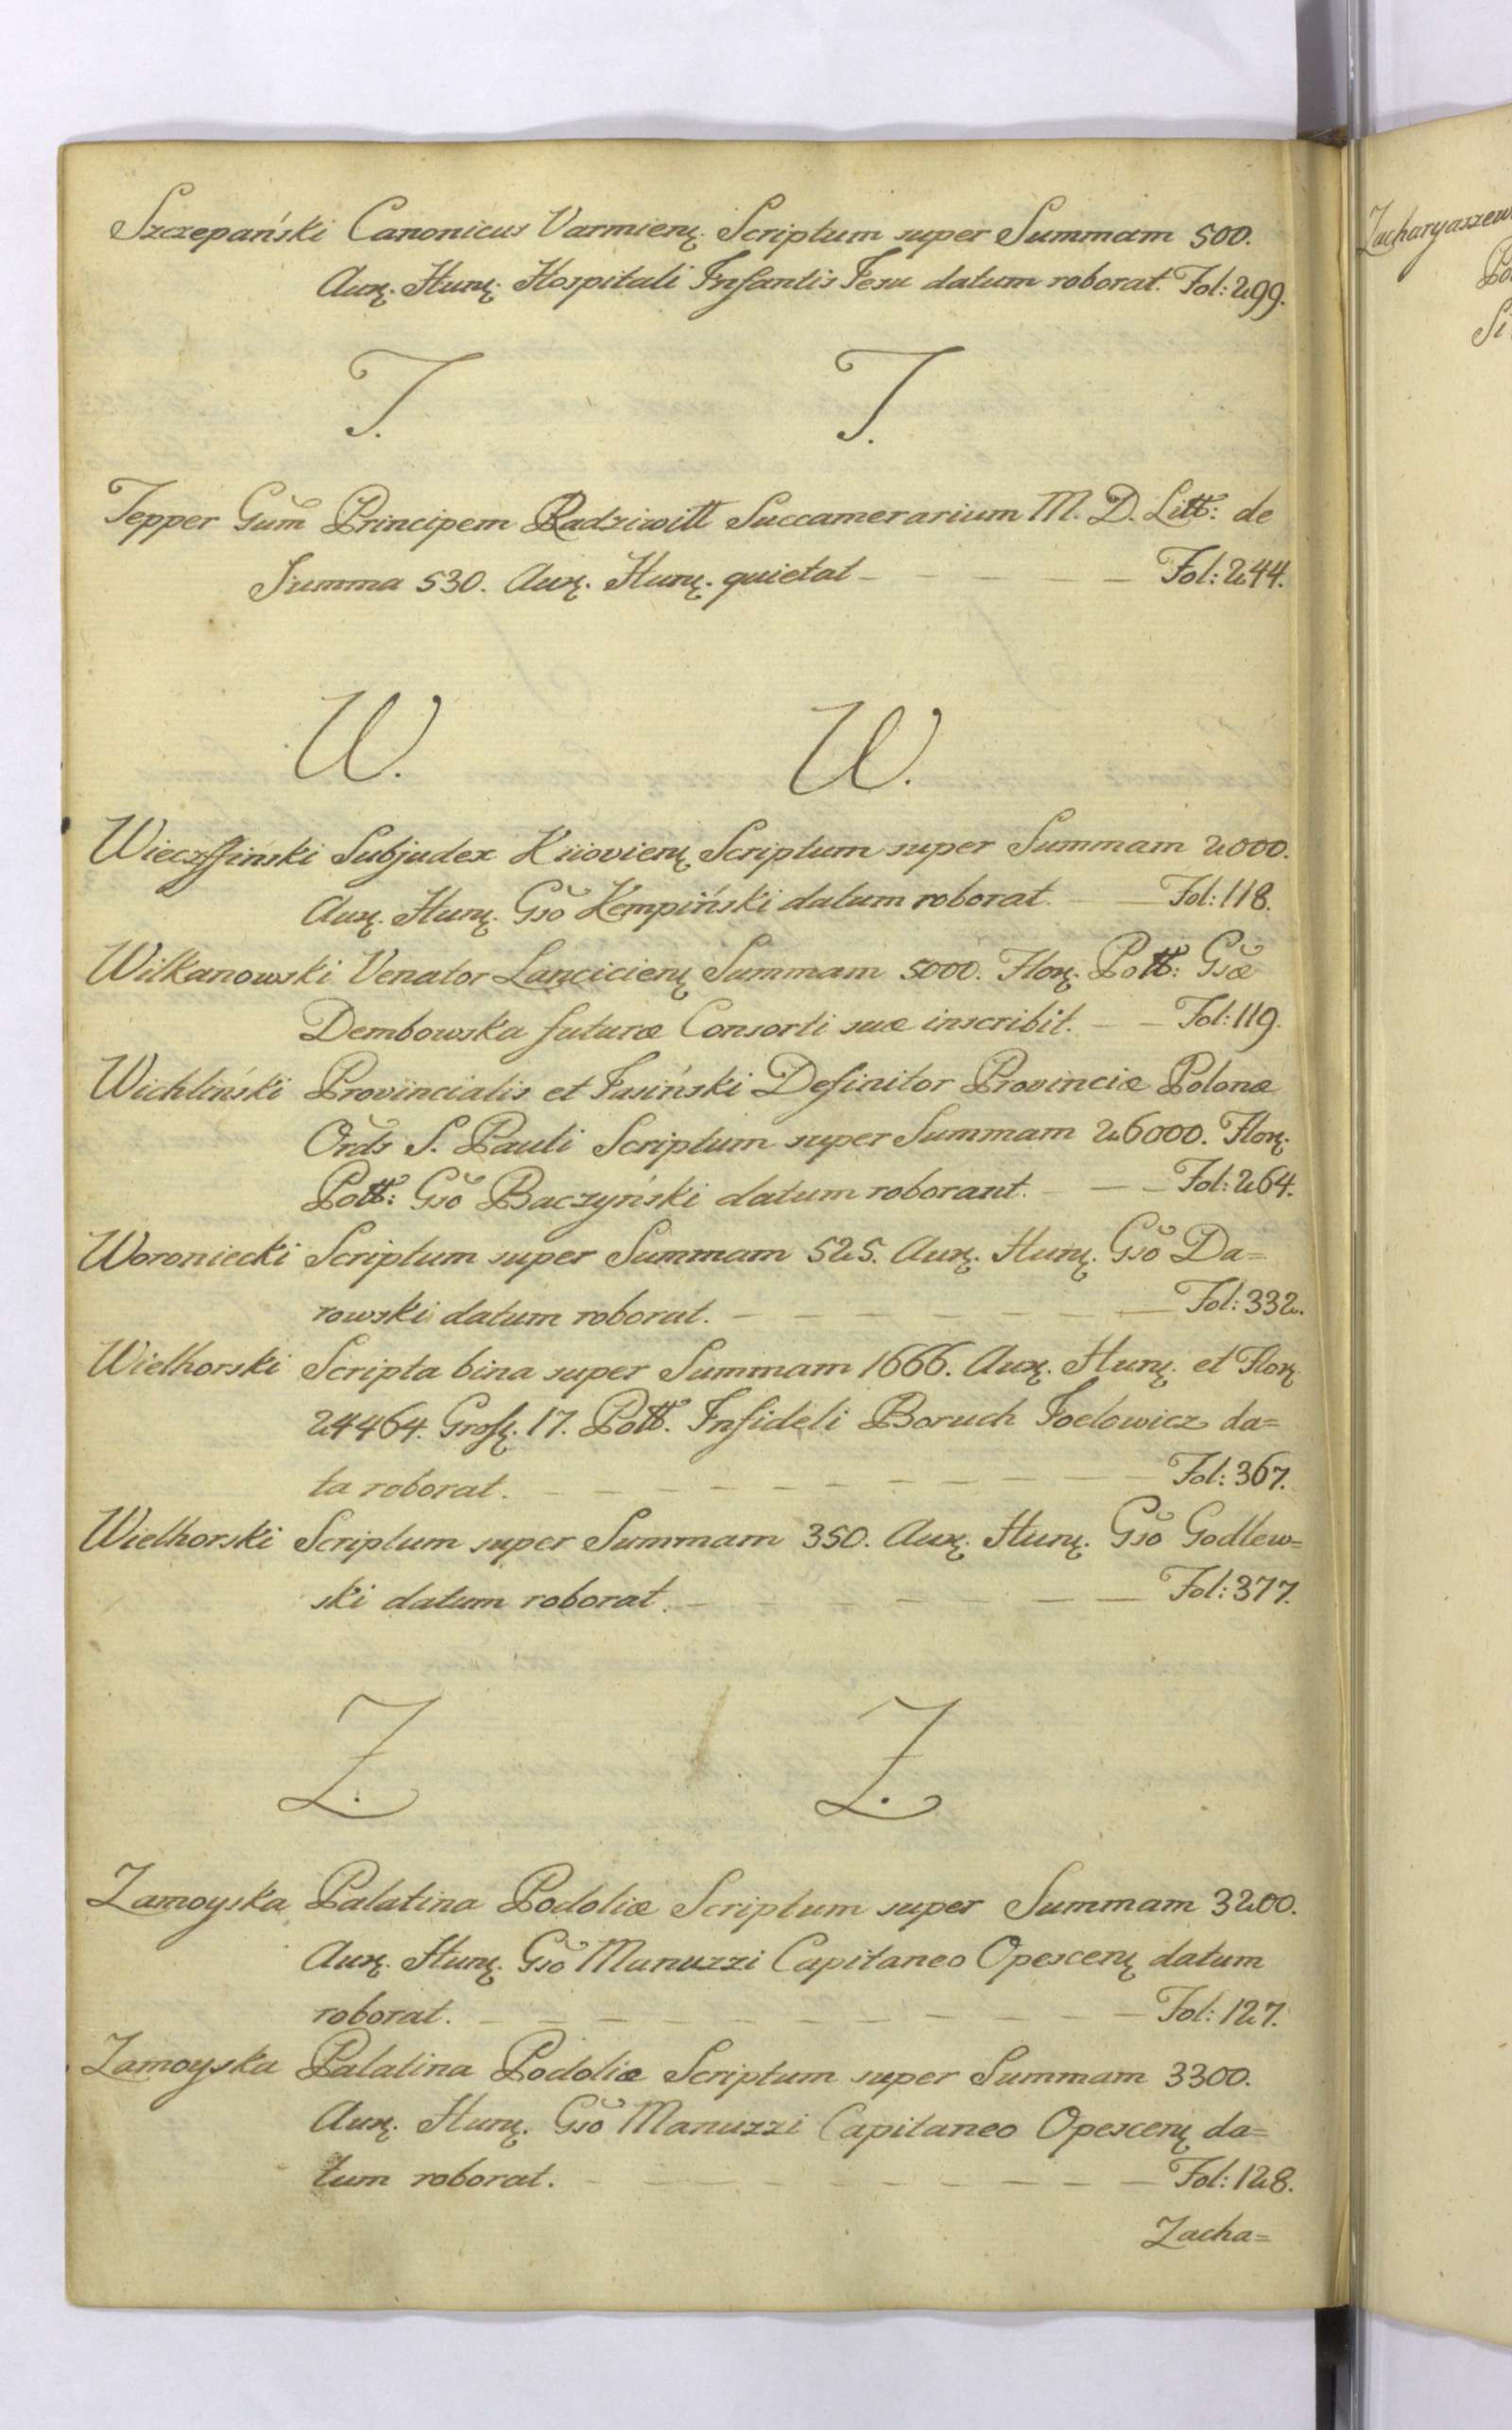 Szczepański Canonicus Varmienę. Scriptum super Summam 500.
Auę. Hunę. Hospitali Infantis Jesu datum roborat. Fol: 299.
T. T.
Tepper Gum̃ Principem Radziwiłł Succamerarium M. D. Litt: de
Summa 530. Auę. Hunę. quietat Fol: 244.
W. W.
Wieczffiński Subjudex Kiiovienę Scriptum super Summam 2000.
Auę. Hunę. Gsŏ Kempiński datum roborat. Fol: 118.
Wilkanowski Venator Lancicienę Summam 5000. Florę. Poll: Gsæ̆
Dembowska futuræ Consorti suæ inscribit. Fol: 119.
Wichliński Provincialis et Jasiński Definitor Provinciæ Polonæ
Ords S. Pauli Scriptum super Summam 26000. Florę.
Poll: Gsŏ Baczyński datum roborant. Fol: 264.
Woroniecki Scriptum super Summam 525. Auę. Hunę. Gsŏ Da=
rowski datum roborat. Fol: 332.
Wielhorski Scripta bina super Summam 1666. Auę. Hunę. et Florę
24464. Grosę. 17. Poll. Infideli Boruch Joelowicz da=
ta roborat. Fol: 367.
Wielhorski Scriptum super Summam 350. Auę. Hunę. Gsŏ Godlew=
ski datum roborat. Fol: 377.
Z. Z.
Zamoyska Palatina Podoliæ Scriptum super Summam 3200.
Auę. Hunę. Gsŏ Manuzzi Capitaneo Opescenę datum
roborat. Fol: 127.
Zamoyska Palatina Podoliæ Scriptum super Summam 3300.
Auę. Hunę. Gsŏ Manuzzi Capitaneo Opescenę da=
tum roborat. Fol: 128.
Zacha=